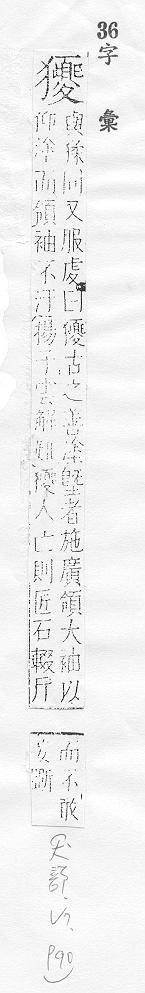 36 字彙
獿
與猱同又服虔曰獿古之善塗塈者施廣領大袖以
仰塗而領袖不汙揚子雲解難獿人亡則匠石輟斤
而不敢
妄斲
犬部. P90)